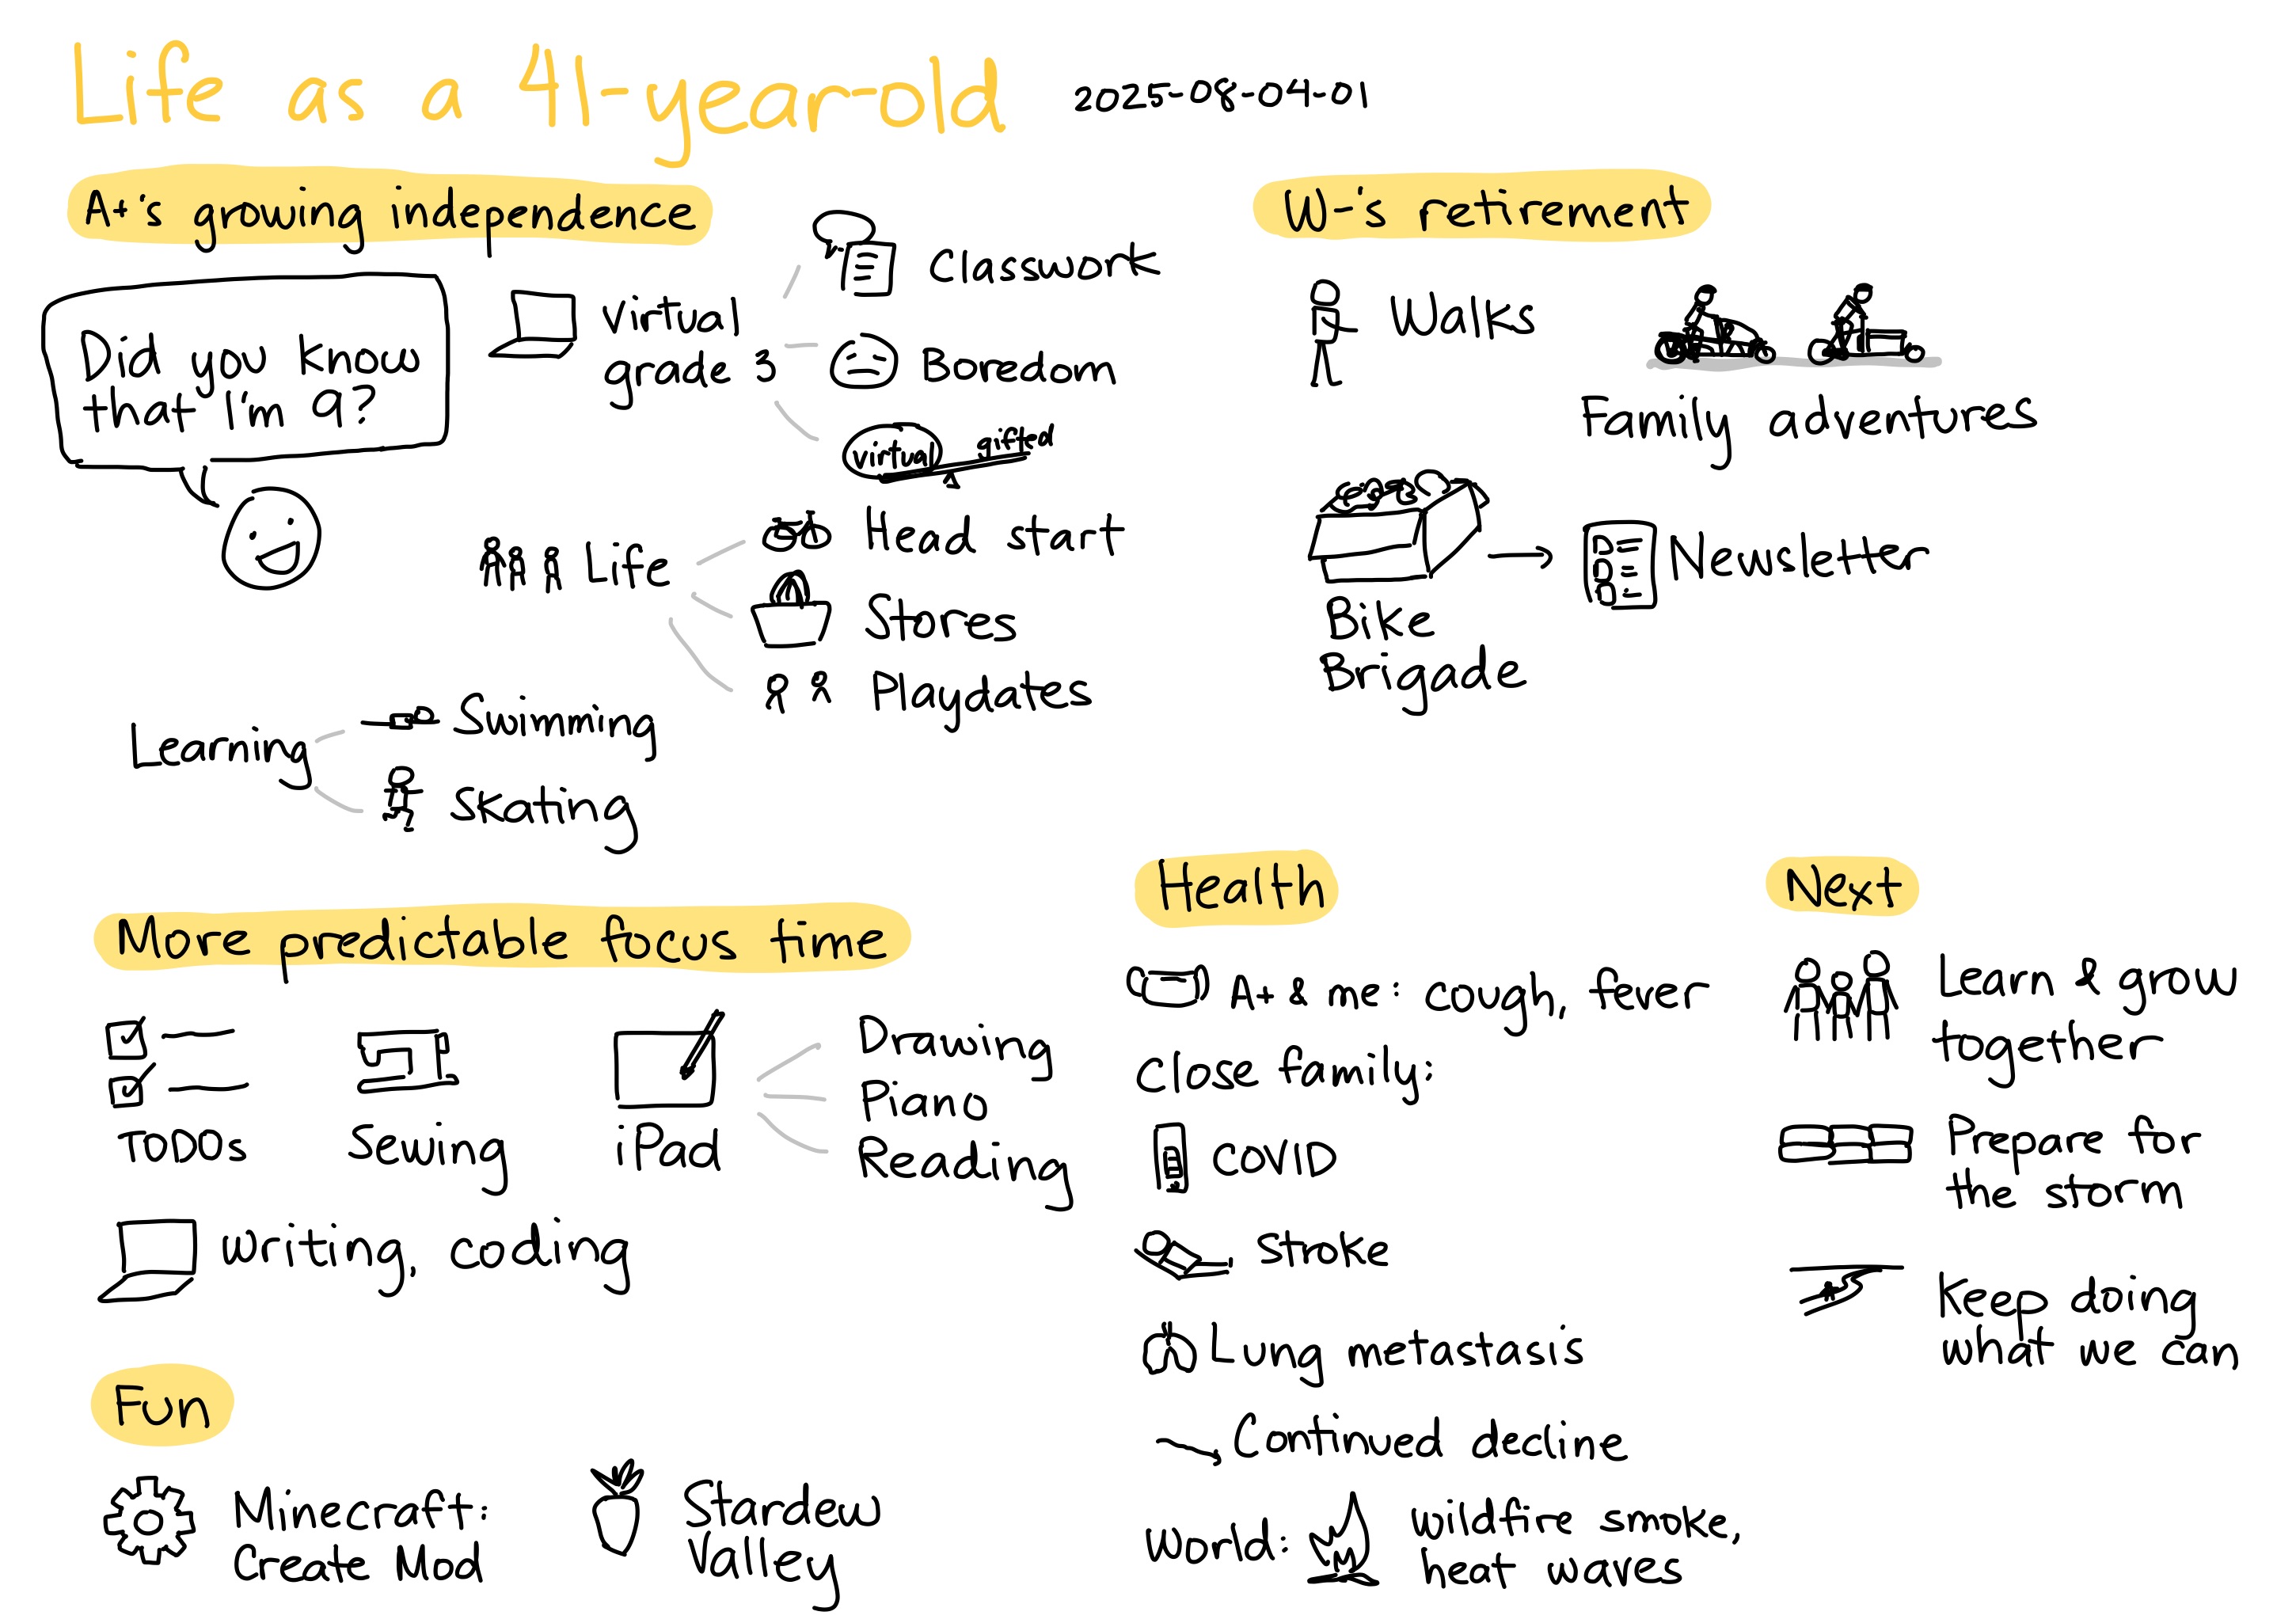 Life as a 41-year-old
2025-08-04-01
A+'s growing independence
Did you know
that I'm 9?
virtual
grade 3
Classwork
Boredom
virtual gifted
Life
Head start
Stores
Playdates
Learning
Swimming
Skating
W-'s retirement
Walks
Family adventures
Bike
Brigade
Newsletter
More predictable focus time
TODOs
Sewing
iPad
Drawing
Piano
Reading
writing, coding
Fun
Minecraft:
Create Mod
Stardew
Valley
Health
A+ & me: cough, fever
Close family:
COVID
stroke
Lung metastasis
Continued decline
World:
wildfire smoke,
heat waves
Next
Learn & grow
together
Prepare for
the storm
Keep doing
what we can